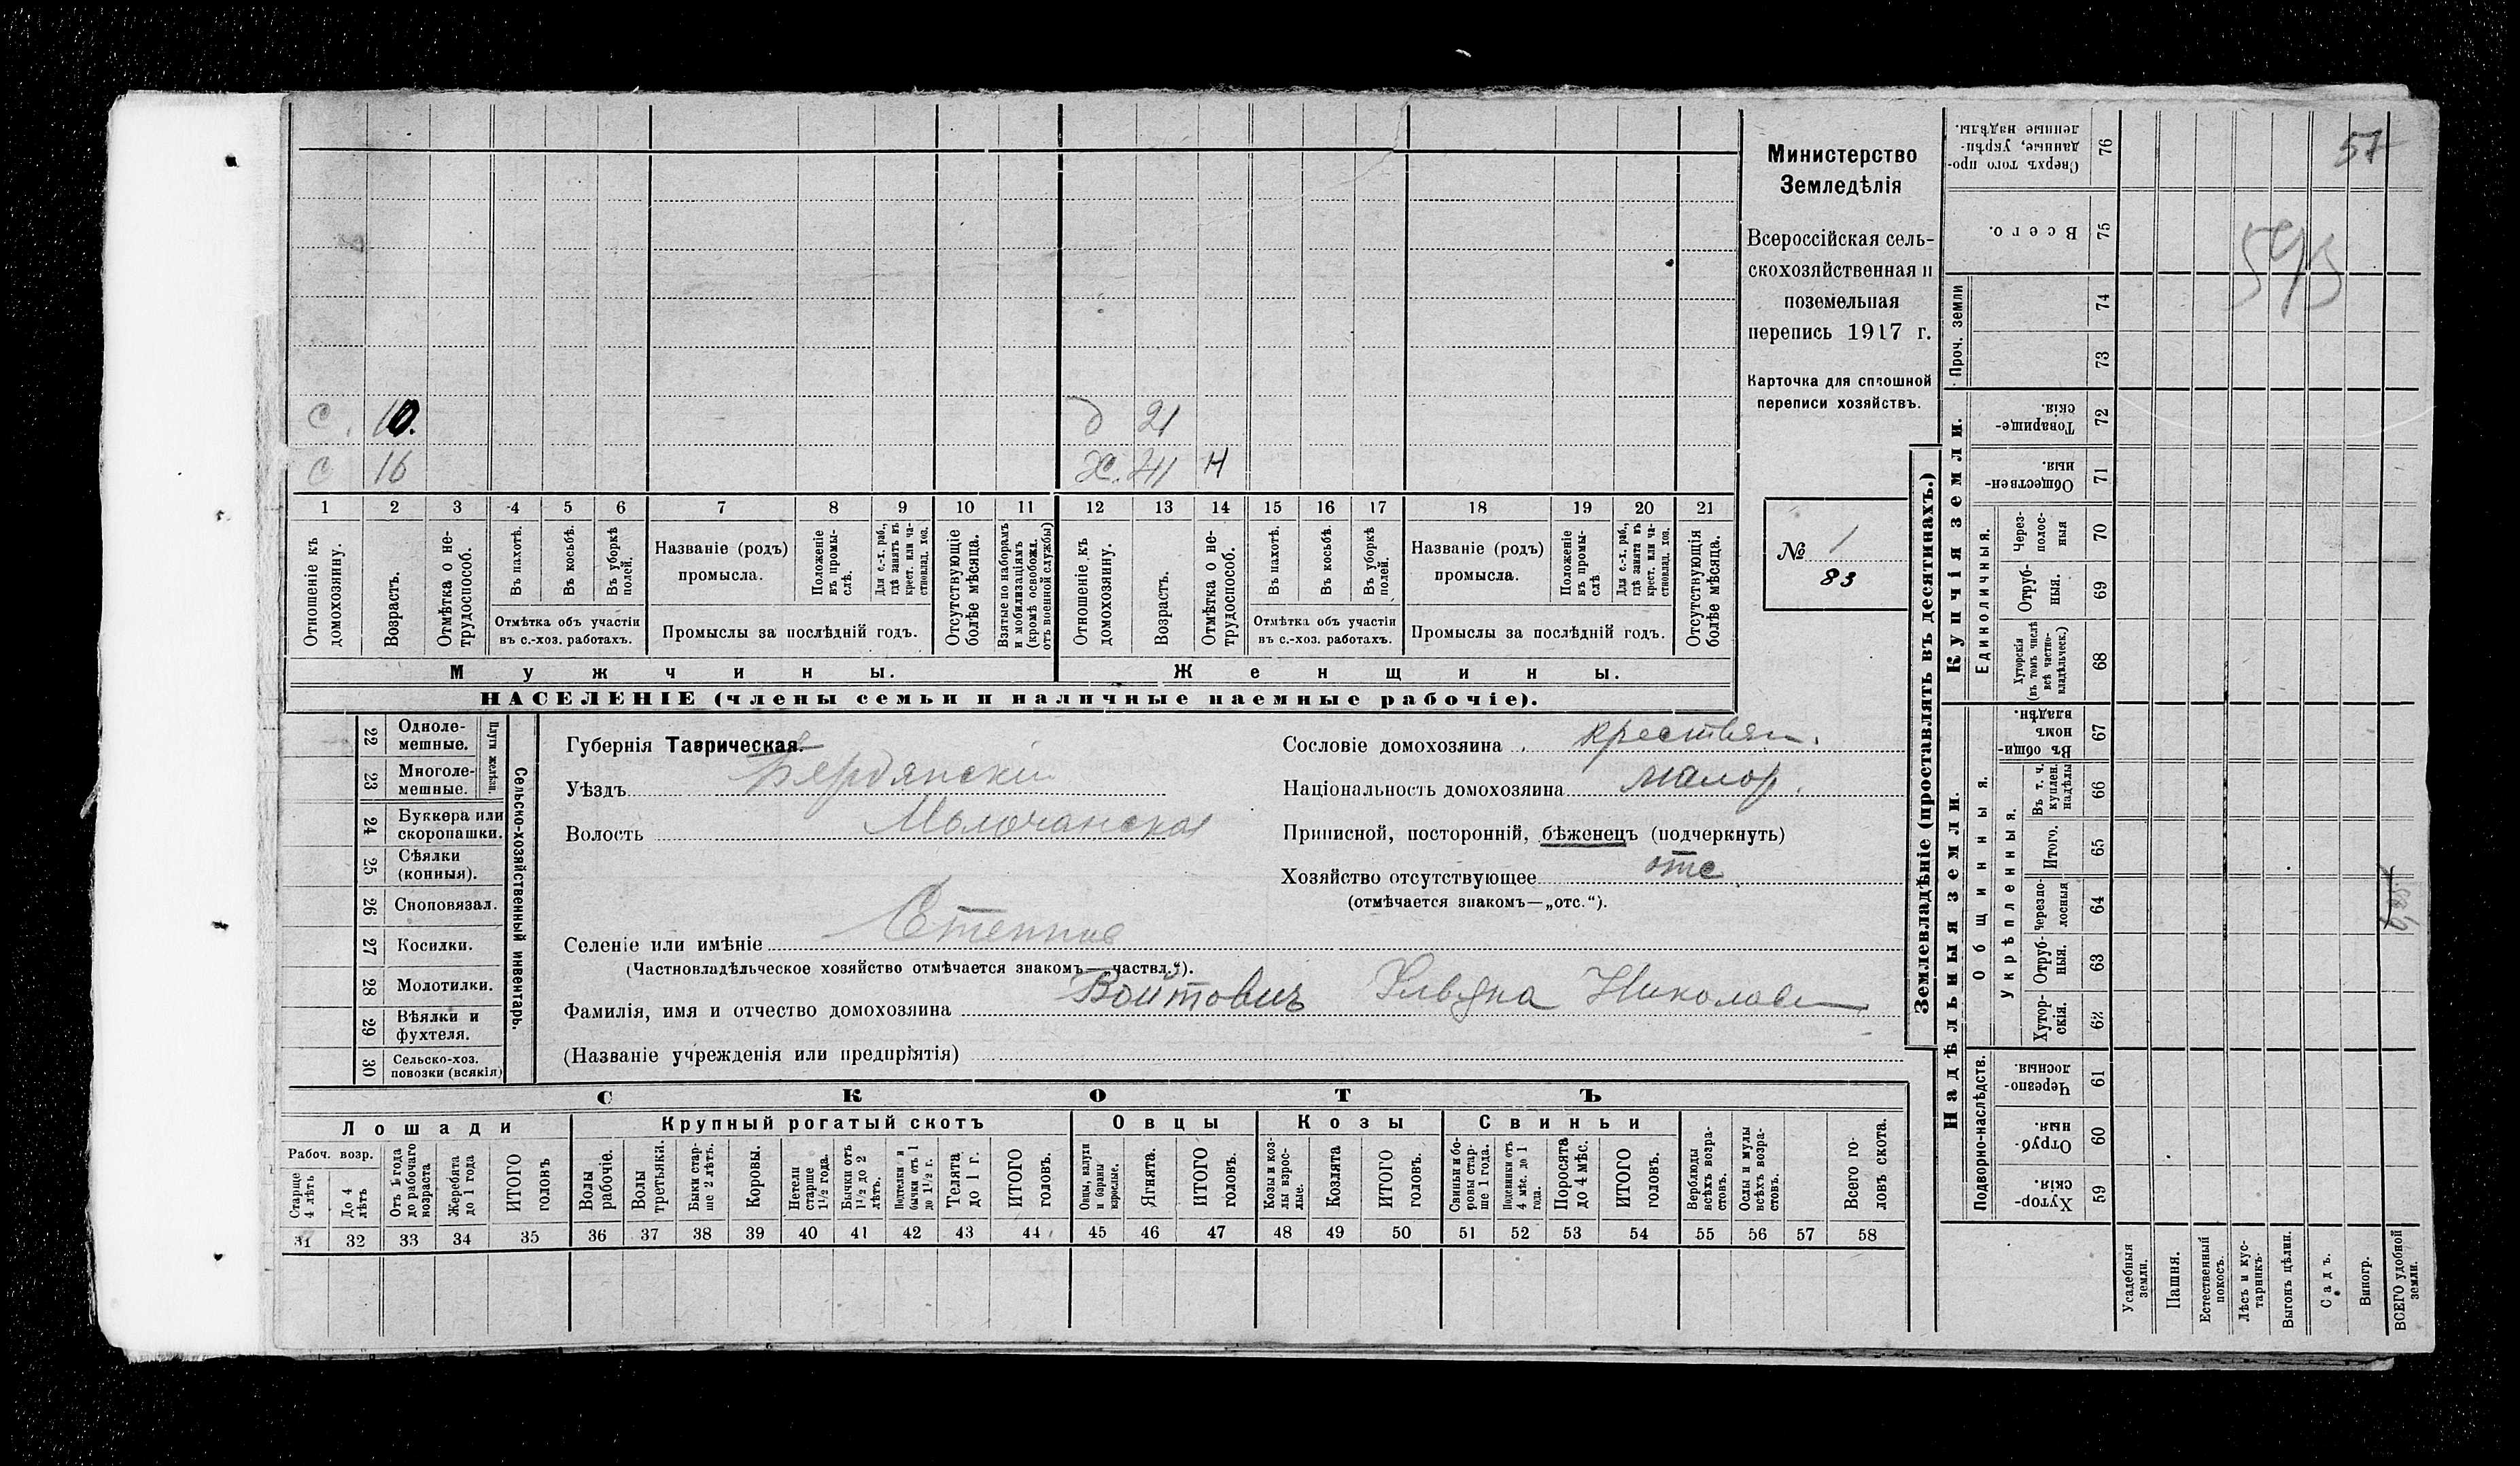 С. 10.
д 21
С 16
Ж. 41 Н
1 2 3 4 5 6 7 8 9 10 11 12 13 14 15 16 17 18 19 20 21
Отношеніе къ домохозяину.
Возрастъ.
Отмѣтка о не-
трудоспособ.
Въ пахотѣ.
Въ косьбѣ.
Въ уборкѣ полей.
Отмѣтка объ участіи
въ с.-хоз. работахъ.
Названіе (родъ)
промысла.
Положеніе въ промы-
слѣ.
Для с.-х. раб., гдѣ занятъ въ крест. или ча-
стновлад. хоз.
Промыслы за послѣдній годъ.
Отсутствующіе болѣе мѣсяца.
Взятые по наборамъ и мобилизаціямъ (кромѣ освобожд. отъ военной службы)
Отношеніе къ домохозяину.
Возрастъ.
Отмѣтка о не-
трудоспособ.
Въ пахотѣ.
Въ косьбѣ.
Въ уборкѣ полей.
Отмѣтка объ участіи
въ с.-хоз. работахъ.
Названіе (родъ)
промысла.
Положеніе въ промы-
слѣ
Для с.-х. раб., гдѣ занята въ крест. или ча-
стновлад. хоз.
Промыслы за послѣдній годъ.
Отсутствующія болѣе мѣсяца.
Мужчины.
Женщины.
НАСЕЛЕНІЕ (члены семьи и наличные наемные рабочіе).
Министерство
Земледѣлія
Всероссійская сель-
скохозяйственная и
поземельная
перепись 1917 г.
Карточка для сплошной
переписи хозяйствъ.
№ 1
83
22 Однолемешные.
23 Многолемешные.
Плуги желѣзн.
24 Буккера или скоропашки.
25 Сѣялки (конныя).
26 Сноповязал.
27 Косилки.
28 Молотилки.
29 Вѣялки и фухтеля.
30 Сельско-хоз. повозки (всякія)
Сельско-хозяйственный инвентарь.
Губернія Таврическая.
Уѣздъ Бердянскій
Волость Молочанская
Сословіе домохозяина крестьян.
Національность домохозяина малор.
Приписной, посторонній, бѣженецъ (подчеркнуть)
Хозяйство отсутствующее отс
(отмѣчается знакомъ—„отс.“).
Селеніе или имѣніе
(Частновладѣльческое хозяйство отмѣчается знакомъ—„частвл.“).
Фамилія, имя и отчество домохозяина Войтовичъ Ульяна Николаев
(Названіе учрежденія или предпріятія)
СКОТЪ
Лошади
Крупный рогатый скотъ
Овцы
Козы
Свиньи
Рабоч. возр.
Старше 4 лѣтъ
До 4 лѣтъ
Отъ 1 года до рабочаго возраста
Жеребята до 1 года
ИТОГО головъ
Волы рабочіе.
Волы третьяки.
Быки стар-
ше 2 лѣтъ.
Коровы.
Нетели старше 1½ года.
Бычки отъ 1½ до 2 лѣтъ.
Подтелки и бычки отъ 1 до 1½ г.
Телята до 1 г.
ИТОГО головъ.
Овцы, валухи и бараны взрослые.
Ягнята.
ИТОГО головъ.
Козы и коз-
лы взрос-
лые.
Козлята
ИТОГО головъ.
Свиньи и бо-
ровы стар-
ше 1 года.
Подсвинки отъ 4 мѣс. до 1 года.
Поросята до 4 мѣс.
ИТОГО головъ.
Верблюды всѣхъ возра-
стовъ.
Ослы и мулы всѣхъ возра-
стовъ.
Всего го-
ловъ скота.
31 32 33 34 35 36 37 38 39 40 41 42 43 44 45 46 47 48 49 50 51 52 53 54 55 56 57 58
Землевладѣніе (проставлять въ десятинахъ.)
Купчія земли.
Надѣльныя земли.
Проч. земли
Единоличныя.
Общинныя.
Укрѣпленныя.
Подворно-наслѣдств.
Сверхъ того про-
данные, укрѣп-
ленные надѣлы. 76
Всего. 75
74
73
Товарище-
скія. 72
Обществен-
ныя. 71
Через-
полос-
ныя 70
Отруб-
ныя. 69
Хуторскія (въ томъ числѣ всѣ частно-
владѣльческ.) 68
Въ общи-
номъ
владѣн. 67
Въ т. ч. куплен. надѣлы 66
Итого. 65
Черезпо-
лосныя 64
Отруб-
ныя. 63
Хутор-
скія. 62
Черезпо-
лосныя. 61
Отруб-
ныя. 60
Хутор-
скія. 59
Усадебныя земли.
Пашня.
Естественный покосъ.
Лѣсъ и кус-
тарникъ.
Выгонъ цѣлин.
Садъ.
Виногр.
ВСЕГО удобной земли.
57